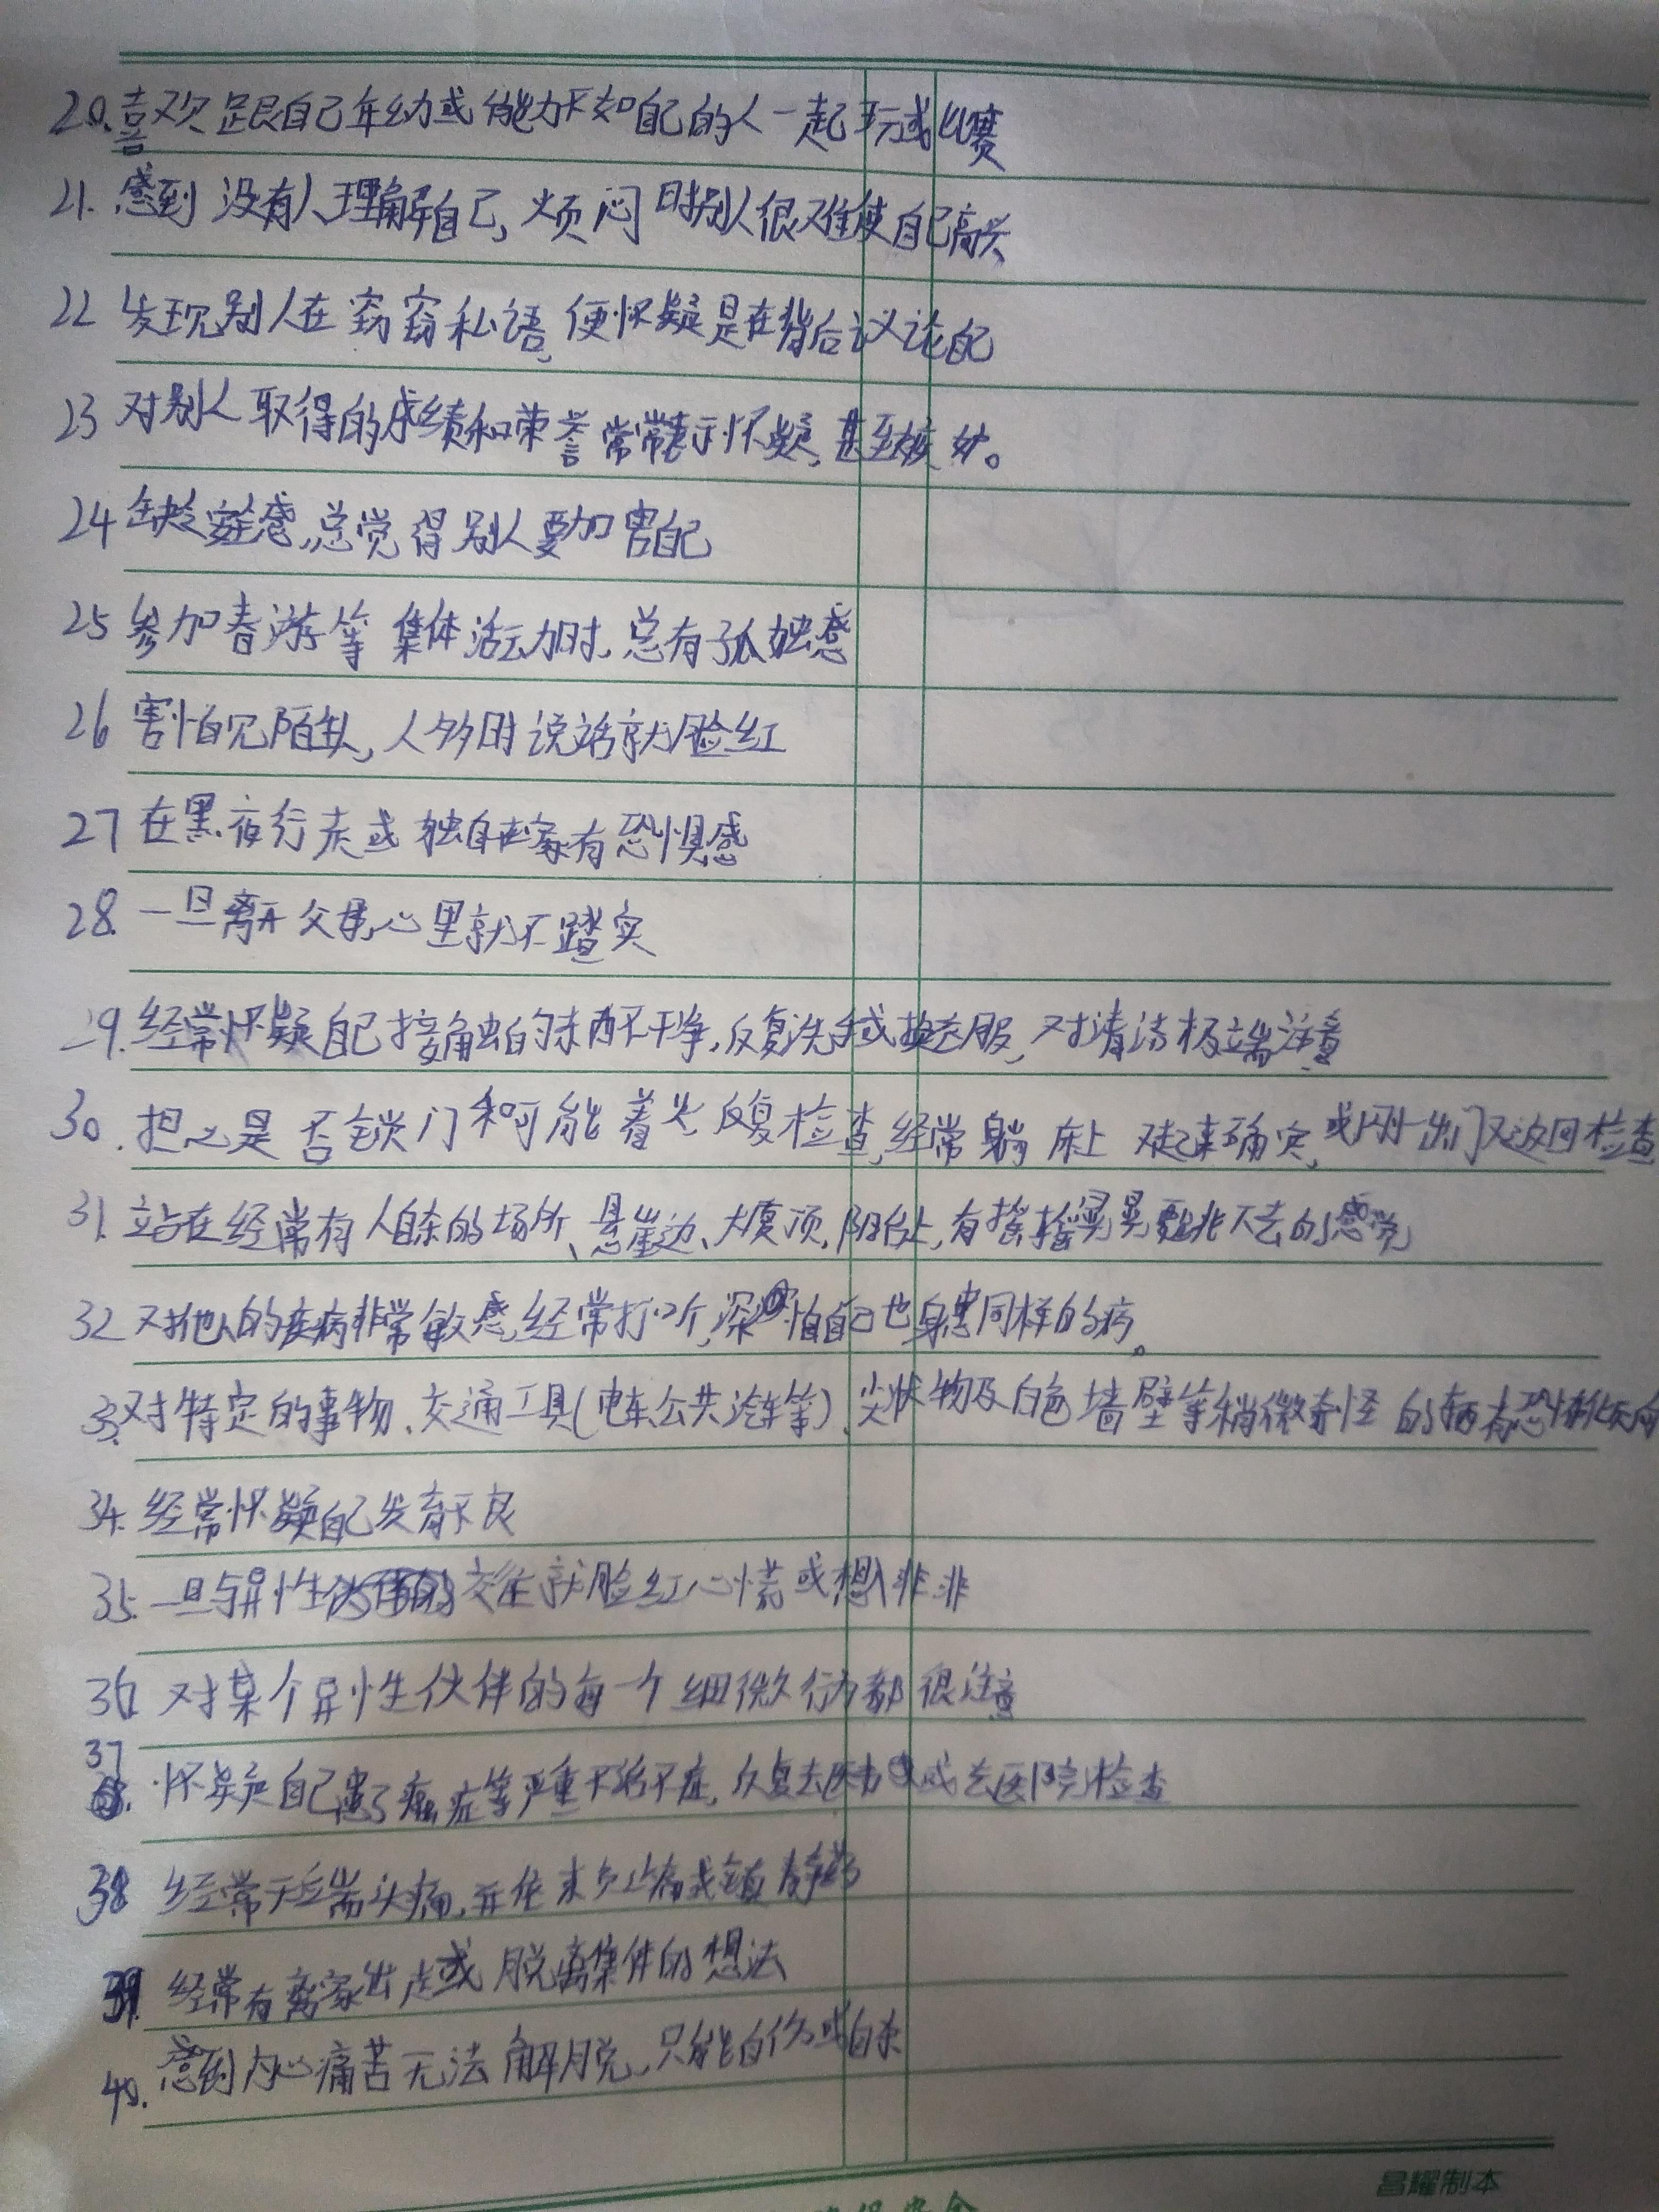 20.喜欢跟自己年幼或能力不如自己的人一起玩或比赛
21.感到没有人理解自己,烦闷时别人很难使自己高兴
22 发现别人在窃窃私语,便怀疑是在背后议论自己
23 对别人取得的成绩和荣誉常常表示怀疑,甚至嫉妒。
24 缺乏安全感,总觉得别人要加害自己
25 参加春游等集体活动时,总有孤独感
26 害怕见陌生人,人多时说话就脸红
27 在黑夜行走或独自在家有恐惧感
28.一旦离开父母,心里就不踏实
29.经常怀疑自己接触的东西不干净,反复洗手或换衣服,对清洁极端注意
30.担心是否锁门和可能着火,反复检查,经常躺床上又起来确实,或刚一出门又返回检查
31.站在经常有人自杀的场所、悬崖边、大厦顶,阳台上,有摇摇晃晃要跳下去的感觉
32 对他人的疾病非常敏感,经常打听,深怕自己也身患同样的病。
33.对特定的事物、交通工具(电车、公共汽车等)、尖状物及白色墙壁等稍微奇怪的东西有恐怖倾向
34.经常怀疑自己发育不良
35.一旦与异性交往就脸红心慌或想入非非
36.对某个异性伙伴的每一个细微行为都很注意
37.怀疑自己患了癌症等严重不治之症,反复去医院检查
38 经常无端头痛,并依赖止痛或镇静药
39.经常有离家出走或脱离集体的想法
40.感到内心痛苦无法解脱,只能自伤或自杀
昌耀制本